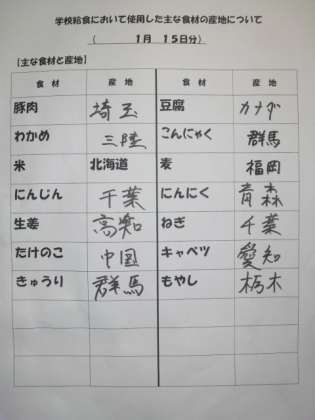 学校給食において使用した主な食材の産地について
( 1月 15日分)
【主な食材と産地】
食 材 産 地 食 材 産 地
豚肉 埼玉 豆腐 カナダ
わかめ 三陸 こんにゃく 群馬
米 北海道 麦 福岡
にんじん 千葉 にんにく 青森
生姜 高知 ねぎ 千葉
たけのこ 中国 キャベツ 愛知
きゅうり 群馬 もやし 栃木